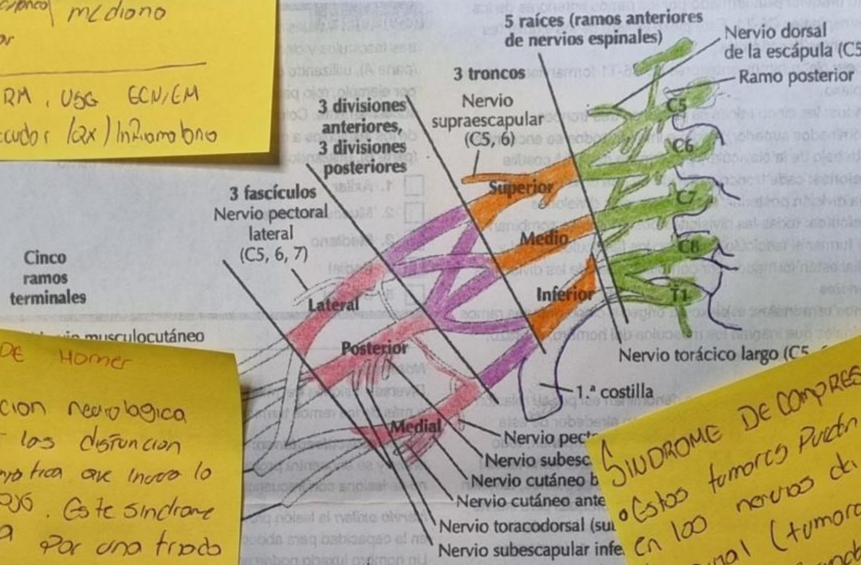 mediano
RM, USG ECN/EM
5 raíces (ramos anteriores
de nervios espinales)
Nervio dorsal
de la escápula (C5
Ramo posterior
3 troncos
Nervio
supraescapular
(C5, 6)
3 divisiones
anteriores,
3 divisiones
posteriores
3 fascículos
Nervio pectoral
lateral
(C5, 6, 7)
Cinco
ramos
terminales
C5
C6
C7
C8
T1
Superior
Medio
Inferior
Lateral
Posterior
Medial
musculocutáneo
Nervio torácico largo (C5,
1.ª costilla
Nervio pect
Nervio subesc
Nervio cutáneo b
Nervio cutáneo ante
Nervio toracodorsal (su
Nervio subescapular infe
DE Horner
cion neurologica
las disfuncion
que
Este sindrome
Por una triada
SINDROME DE COMPRES
Estos tumores Pueden
en los nervios del
(tumor